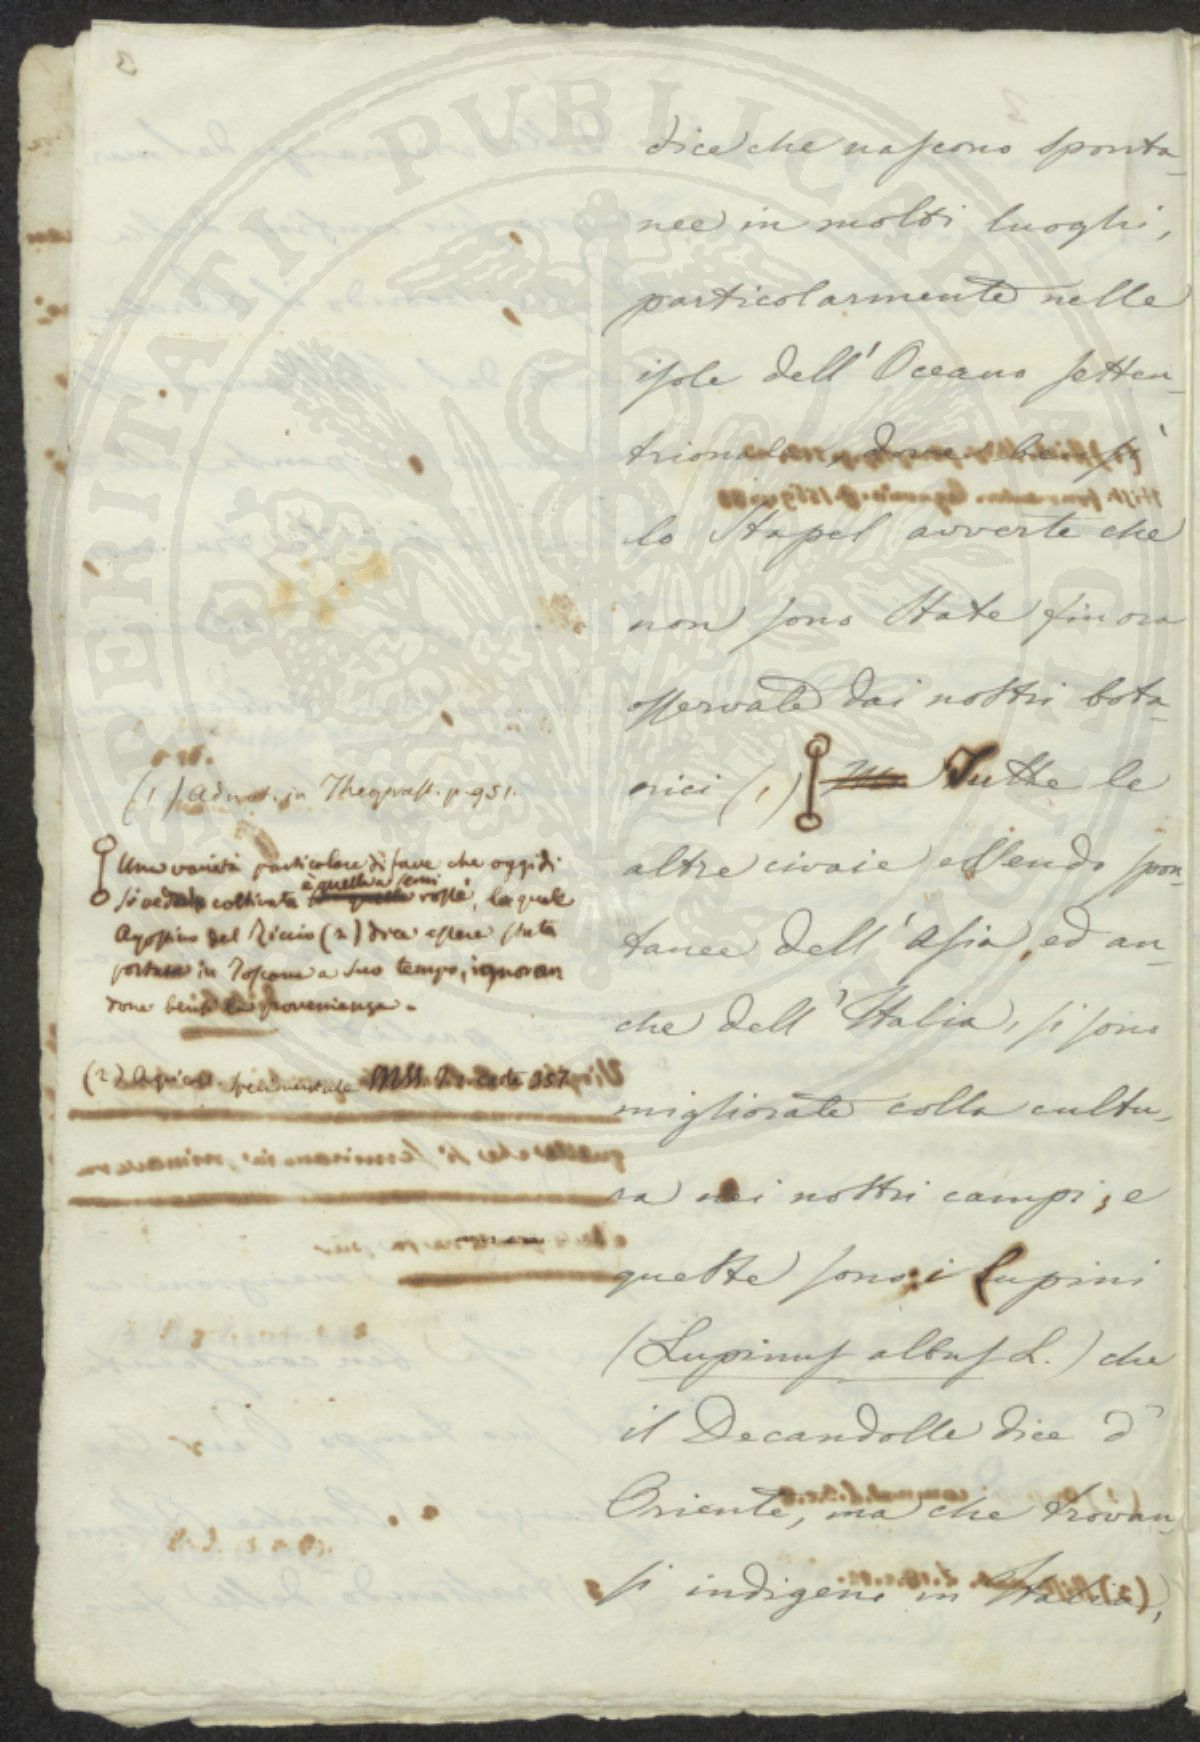 dice che nascono sponta-
nee in molti luoghi,
particolarmente nelle
isole dell' Oceano setten-
trionale, dove
lo Stapel avverte che
non sono state finora
osservate dai nostri bota-
nici (1) Tutte le
altre civaie essendo spon-
tanee dell' Asia, ed an-
che dell' Italia, si sono
migliorate colla cultu-
ra nei nostri campi, e
queste sono: i Lupini
(Lupinus albus L.) che
il Decandolle dice d'
Oriente, ma che trovan-
si indigeni in Italia,
(1) Adnot. in Theoprast. p. 951.
Una varietà particolare di fave che oggidì
si vede coltivata è quella a semi rossi, la quale
Agostino del Riccio (2) dice essere stata
portata in Toscana a suo tempo, ignoran
done bensì la provenienza.
(2) Agricolt. sperimentale MSS. T. 2. carte 357
PERITATI PUBLICAE